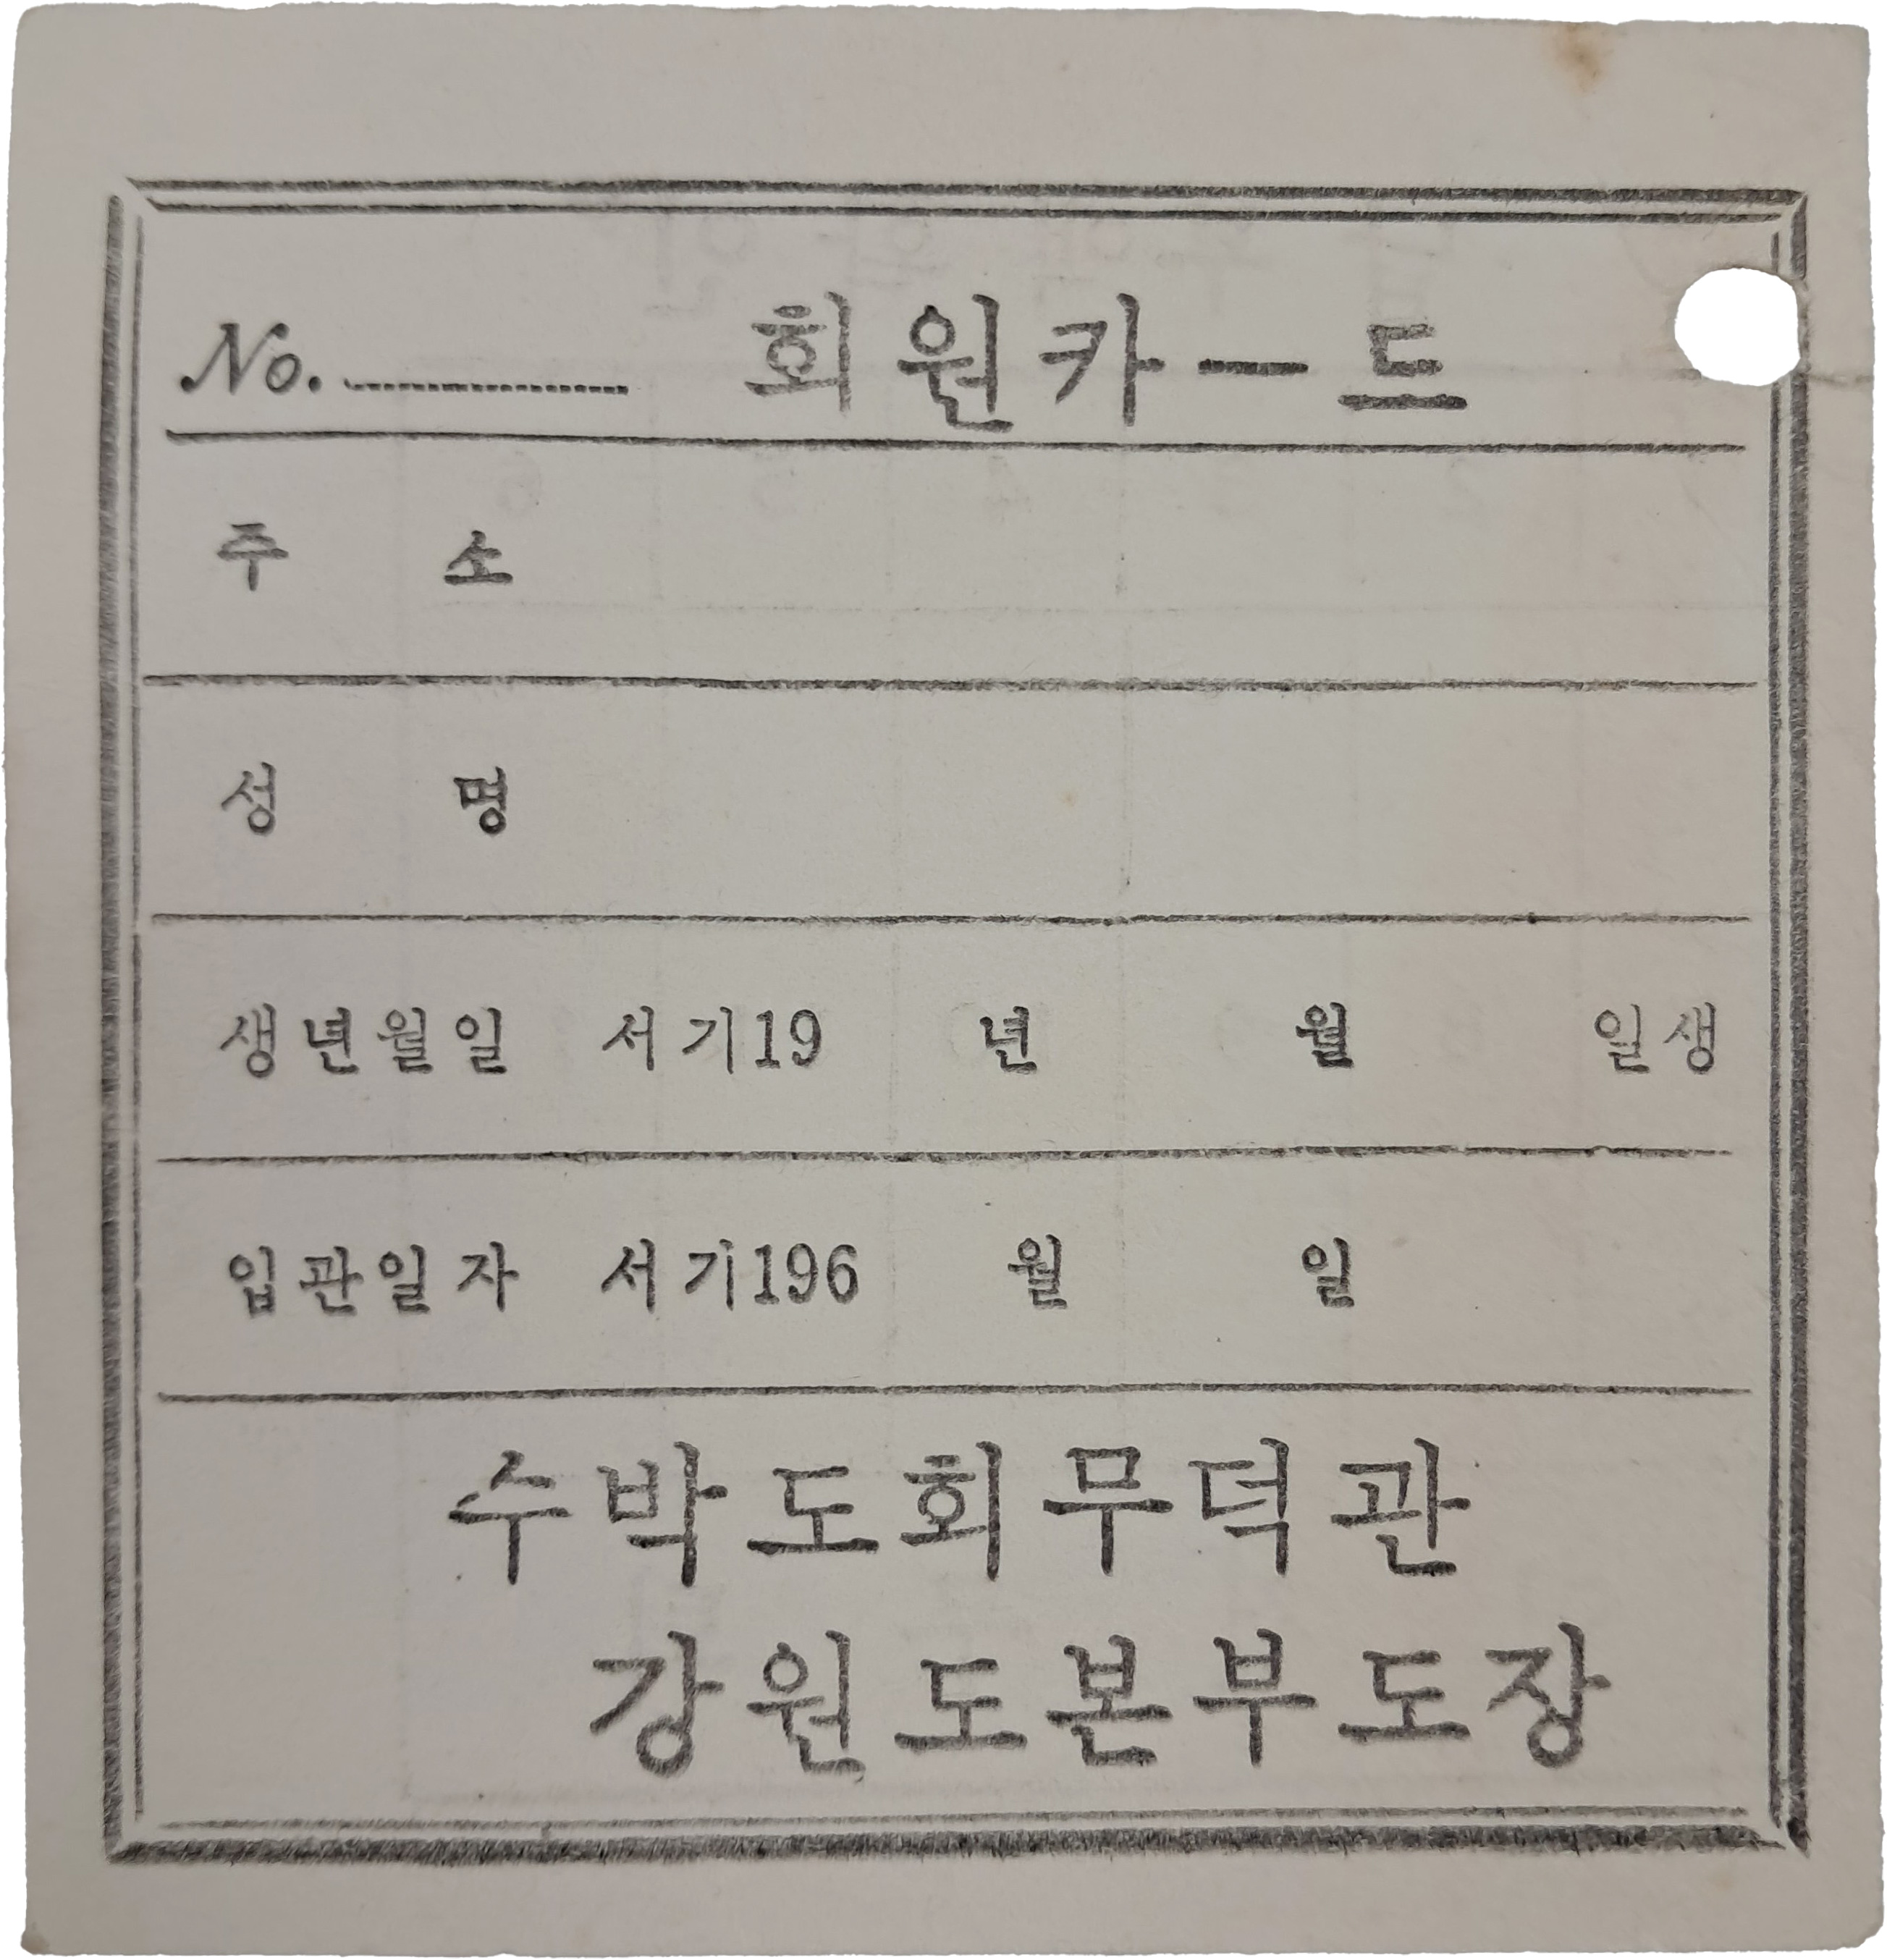 No. 회원카ー드
주 소
성 명
생년월일 서기19 년 월 일생
입관일자 서기196 월 일
수박도회무덕관
강원도본부도장